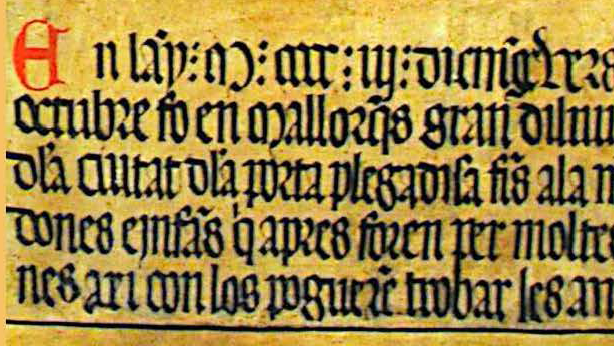 En lāy : M : cccc : iij : diemēge
octubre fo en Mallorq̄s gran diluui
dl̄a ciutat dl̄a porta plegadisa fīs a la m
dones e infās q̄ apres foren per moltes
nes axi con los poguerē trobar les an